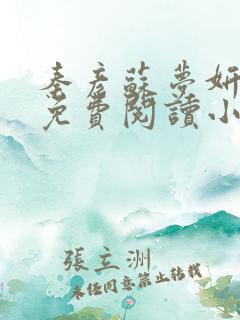 秦彦蘇夢妍
免費閱讀小
張立洲
未经同意禁止转载